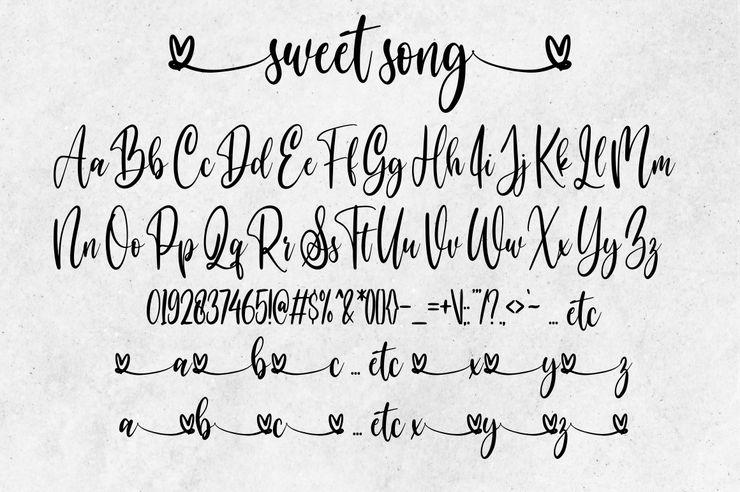 sweet song
Aa Bb Cc Dd Ee Ff Gg Hh Ii Jj Kk Ll Mm
Nn Oo Pp Qq Rr Ss Tt Uu Vv Ww Xx Yy Zz
0192837465!@#$%^&*(){}-_=+\|;:'"/?.,<>`~ ... etc
a b c ... etc x y z
a b c ... etc x y z